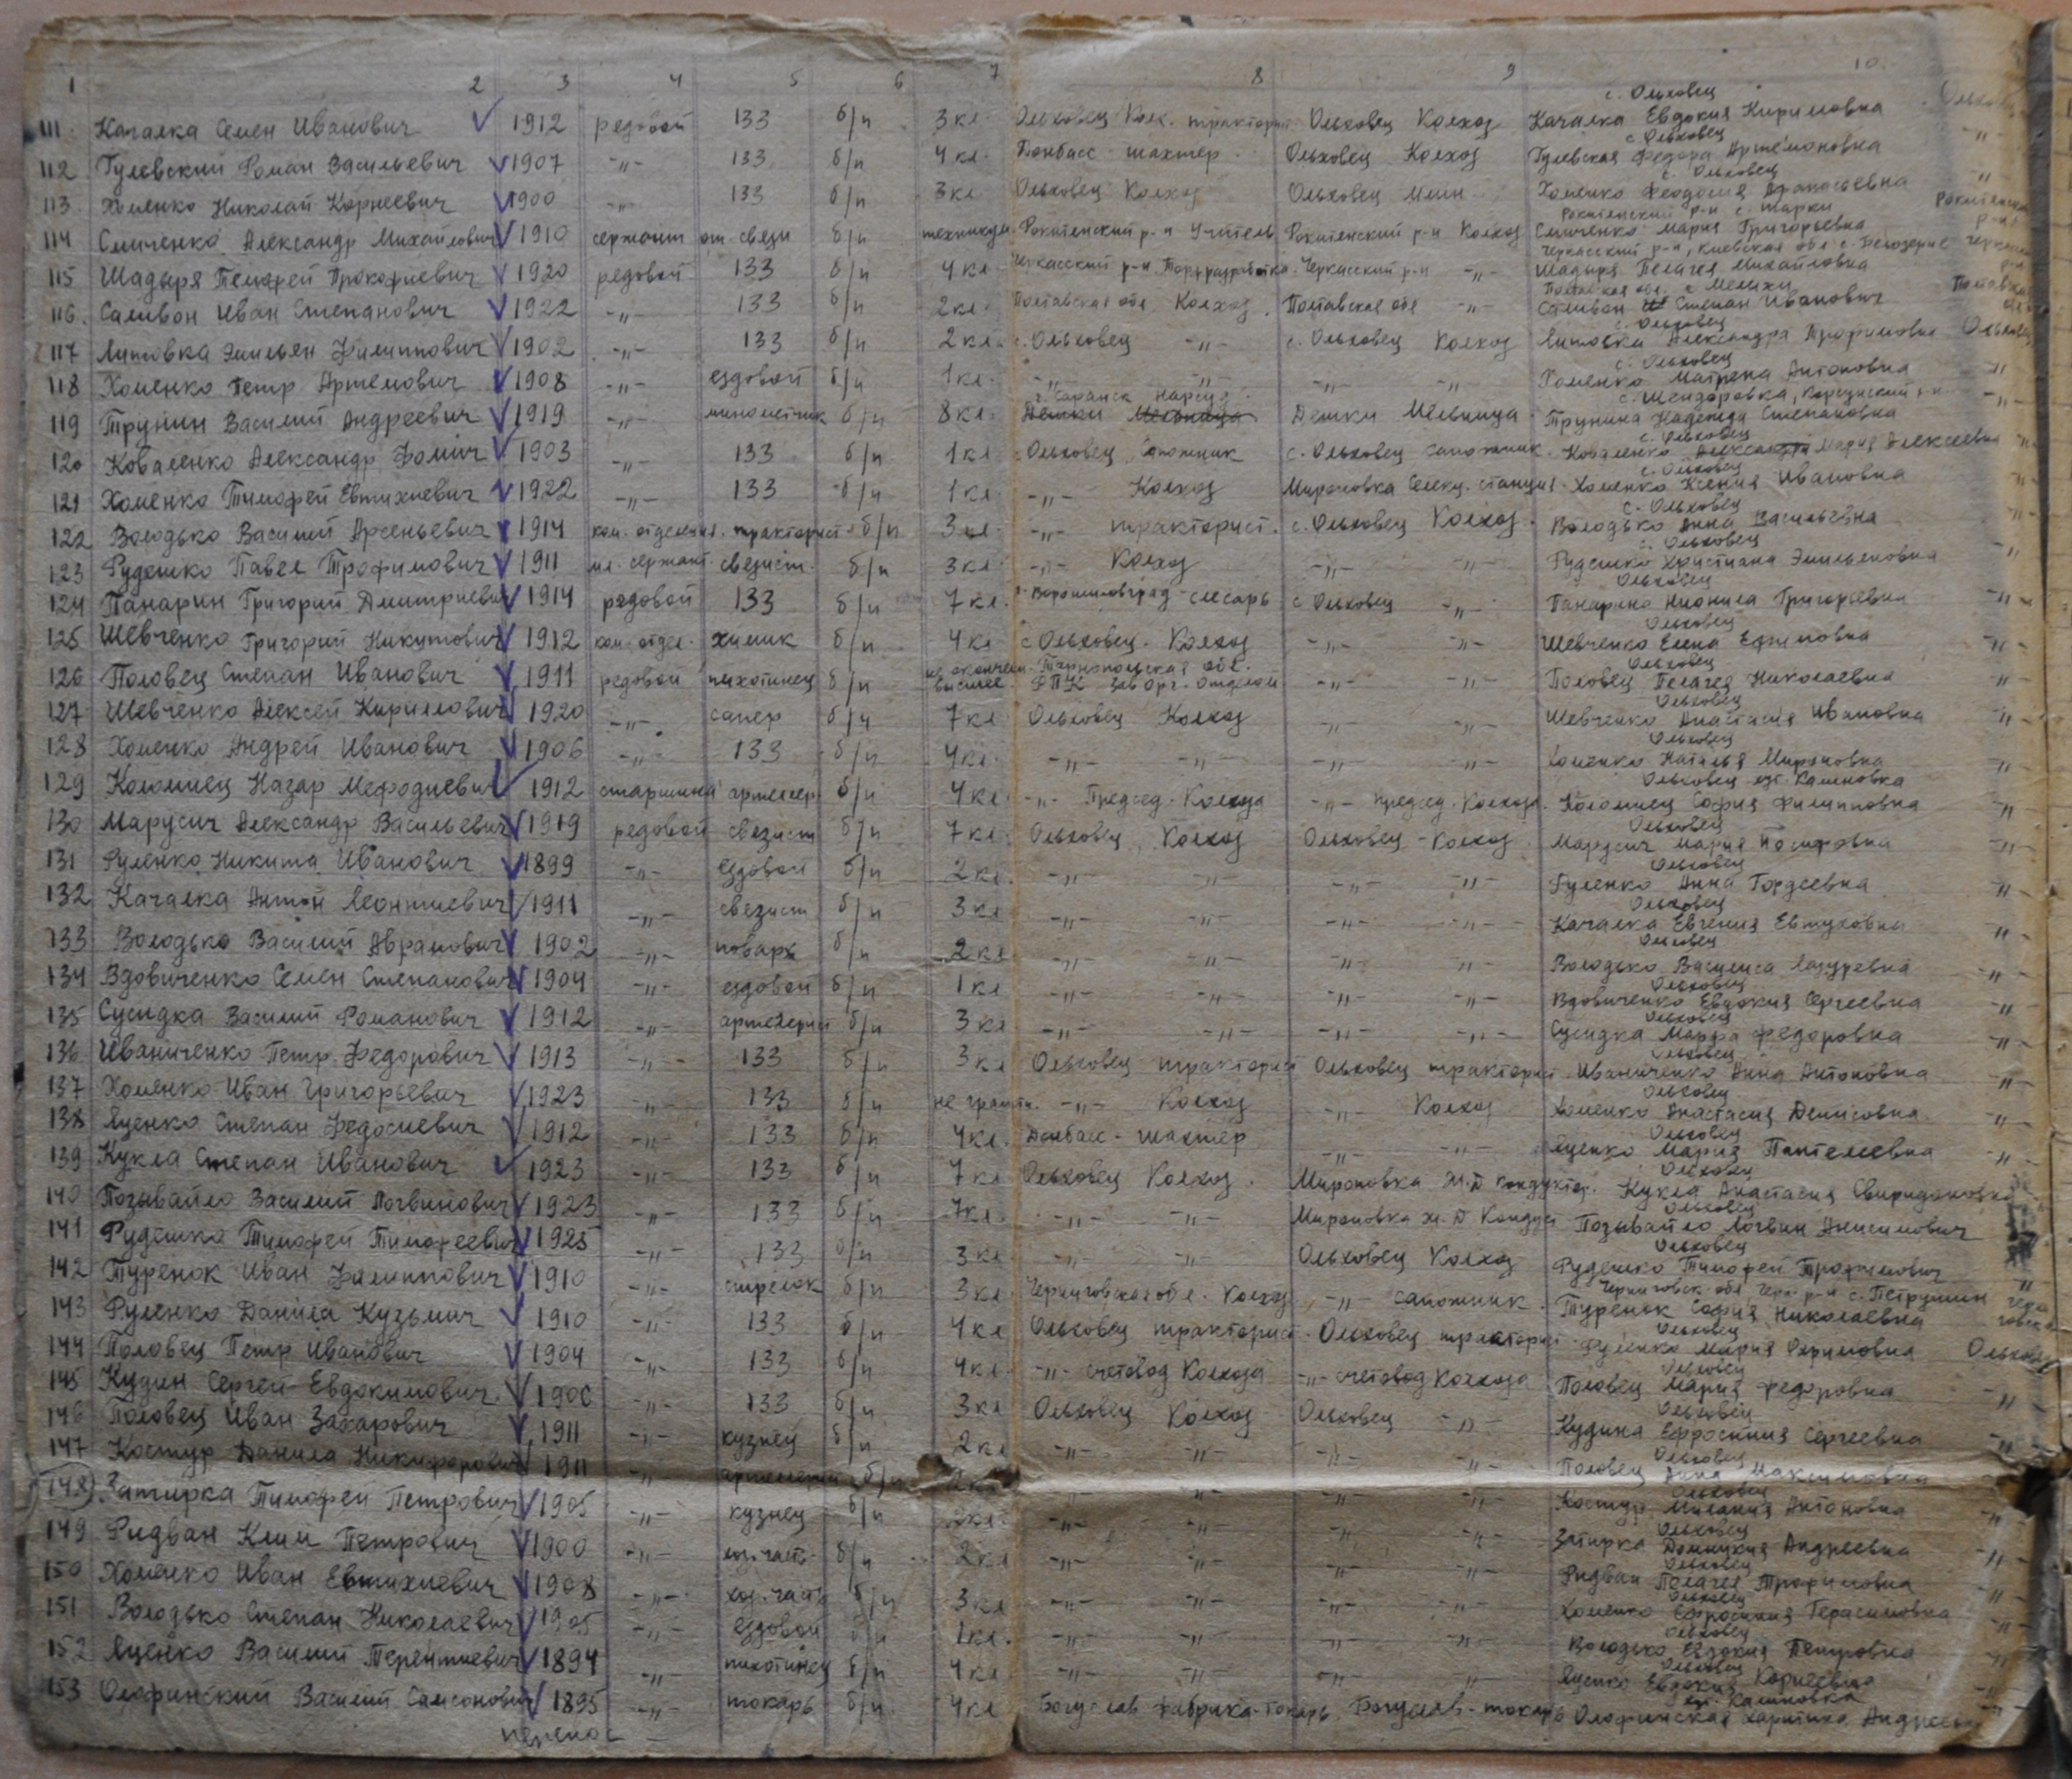 1 2 3 4 5 6 7 8 9 10
с. Ольховец
111 Качалка Семен Иванович V 1912 редовой 133 б/п 3 кл. Ольховец Колх. тракторист Ольховец Колхоз Качалка Евдокия Кириловна
с. Ольховец
112 Гулевский Роман Васильевич V 1907 -"- 133 б/п 4 кл. Донбасс шахтер Ольховец Колхоз Гулевская Федора Артемоновна "
с. Ольховец
113 Хоменко Николай Корнеевич V 1900 -"- 133 б/п 3 кл. Ольховец Колхоз Ольховец Хоменко Феодосия "
Рокитенский р-н с. Шарки
114 Смиченко Александр Михайлович V 1910 сержант от. связи б/п техникум Рокитенский р-н Учитель Рокитенский р-н Колхоз Смиченко Мария Григорьевна
Черкасский р-н, Киевская обл. с. Белозерие
115 Шадыря Тимофей Прокофиевич V 1920 редовой 133 б/п 4 кл. Черкасский р-н Черкасский р-н -"- Шадыря Пелагея Михайловна
116. Саливон Иван Степанович V 1922 -"- 133 б/п 2 кл. Полтавская обл Колхоз. Полтавская обл -"- Саливон Степан Иванович
с. Ольховец
117 Литовка Эмильян Филиппович V 1902 -"- 133 б/п 2 кл. с. Ольховец -"- с. Ольховец Колхоз Литовка Александра Трофимовна
с. Ольховец
118 Хоменко Петр Артемович V 1908 -"- ездовой б/п 1 кл. -"- -"- -"- -"- Хоменко Матрена Антоновна "
г. Саранск Нарсуд с. Шендоровка, Корсунский р-н
119 Трунин Василий Андреевич V 1919 -"- минометчик б/п 8 кл. Дешки Мельница Дешки Мельница Трунина Надежда Степановна -"-
с. Ольховец
120 Коваленко Александр Фомич V 1903 -"- 133 б/п 1 кл с. Ольховец Сапожник с. Ольховец сапожник Коваленко Мария Алексеевна
с. Ольховец
121 Хоменко Тимофей Евтихиевич V 1922 -"- 133 б/п 1 кл. -"- Колхоз Мироновка Селекц. станция Хоменко Ксения Ивановна
с. Ольховец
122 Володько Василий Арсеньевич V 1914 ком. отделения тракторист б/п 3 кл -"- тракторист. с. Ольховец Колхоз. Володько Анна Васильевна
с. Ольховец
123 Рудешко Павел Трофимович V 1911 мл. сержант связист. б/п 3 кл -"- Колхоз -"- -"- Рудешко Христиана Эмильяновна "
Ольховец
124 Панарин Григорий Дмитриевич V 1914 редовой 133 б/п 7 кл. Ворошиловград слесарь с Ольховец -"- Панарина Григорьевна -"-
Ольховец
125 Шевченко Григорий Никитович V 1912 ком. отдел. химик б/п 4 кл с Ольховец. Колхоз -"- -"- Шевченко Елена Ефимовна -"-
не окончен. Тарнопольская обл. Ольховец
126 Половец Степан Иванович V 1911 редовой пихотинец б/п высшее Зав Орг. Отделом -"- -"- Половец Пелагея Николаевна -"-
Ольховец
127 Шевченко Алексей Кириллович V 1920 -"- сапер б/п 7 кл Ольховец Колхоз -"- -"- Шевченко Анастасия Ивановна "-
Ольховец
128 Хоменко Андрей Иванович V 1906 -"- 133 б/п 4 кл. -"- -"- -"- -"- Хоменко Наталья Мироновна "
Ольховец хут. Калиновка
129 Коломиец Назар Мефодиевич V 1912 старшина артелер б/п 4 кл -"- Председ. Колхоза -"- председ. Колхоза. Коломиец София Филипповна "
Ольховец
130 Марусич Александр Васильевич V 1919 редовой связист б/п 7 кл. Ольховец Колхоз Ольховец - Колхоз Марусич Мария Иосифовна -"-
Ольховец
131 Руленко Никита Иванович V 1899 -"- ездовой б/п 2 кл. -"- -"- -"- -"- Руленко Анна Гордеевна "
Ольховец
132 Качалка Антон Леонтиевич V 1911 -"- связист б/п 3 кл -"- -"- -"- -"- Качалка Евгения Евтуховна "-
Ольховец
133 Володько Василий Аврамович V 1902 -"- поварь б/п 2 кл -"- -"- -"- -"- Володько Василиса Лазуревна -"-
Ольховец
134 Вдовиченко Семен Степанович V 1904 -"- ездовой б/п 1 кл -"- -"- -"- -"- Вдовиченко Евдокия Сергеевна -"-
Ольховец
135 Сусидка Василий Романович V 1912 -"- артелерист б/п 3 кл -"- -"- -"- -"- Сусидка Марфа Федоровна -"-
Ольховец
136 Иваниченко Петр Федорович V 1913 -"- 133 б/п 3 кл Ольховец тракторист Ольховец тракторист. Иваниченко Анна Антоновна -"-
Ольховец
137 Хоменко Иван Григорьевич V 1923 -"- 133 б/п не грамтн. -"- Колхоз -"- Колхоз Хоменко Анастасия Денисовна -"-
Ольховец
138 Яценко Степан Федосиевич V 1912 -"- 133 б/п 4 кл. Донбасс - шахтер -"- -"- Яценко Мария Пантелеевна -"-
Ольховец
139 Кукла Степан Иванович V 1923 -"- 133 б/п 7 кл Ольховец Колхоз. Мироновка Ж.Д кондуктор. Кукла Анастасия Свиридоновна
Ольховец
140 Позывайло Василий Логвинович V 1923 -"- 133 б/п 7 кл. -"- -"- Мироновка ж. Д Кондукт Позывайло Логвин Анисимович
Ольховец
141 Рудешко Тимофей Тимофеевич V 1925 -"- 133 б/п 3 кл -"- -"- Ольховец Колхоз Рудешко Тимофей Трофимович "
Черниговск. обл Черн. р-н с. Петрушин
142 Туренок Иван Филиппович V 1910 -"- стрелок б/п 3 кл Черниговская обл. Колхоз -"- сапожник. Туренок София Николаевна
Ольховец
143 Руленко Данила Кузьмич V 1910 -"- 133 б/п 4 кл Ольховец тракторист. Ольховец тракторист Руленко Мария Охримовна
Ольховец
144 Половец Петр Иванович V 1904 -"- 133 б/п 4 кл. -"- счетовод Колхоза -"- счетовод Колхоза Половец Мария Федоровна -"-
Ольховец
145 Кудин Сергей Евдокимович. V 1900 -"- 133 б/п 3 кл Ольховец Колхоз Ольховец -"- Кудина Ефросиния Сергеевна -"-
Ольховец
146 Половец Иван Захарович V 1911 -"- кузнец б/п 2 кл -"- -"- -"- -"- Половец Анна Максимовна
Ольховец
147 Костур Данила Никифорович 1911 -"- б/п -"- -"- -"- -"- Костур Милания Антоновна -"-
Ольховец
148 Затирка Тимофей Петрович V 1905 -"- кузнец б/п 2 кл. -"- -"- -"- -"- Затирка Домникия Андреевна -"-
Ольховец
149 Ридван Клим Петрович V 1900 -"- б/п 2 кл -"- -"- -"- -"- Ридван Полагея Трофимовна "
Ольховец
150 Хоменко Иван Евтихиевич V 1908 -"- хоз. часть б/п 3 кл -"- -"- -"- -"- Хоменко Ефросиния Герасимовна -"-
Ольховец
151 Володько Степан Николаевич V 1905 -"- ездовой б/п 1 кл. -"- -"- -"- -"- Володько Евдокия Петровна "
Ольховец
152 Яценко Василий Терентиевич V 1894 -"- пихотинец б/п 4 кл -"- -"- -"- -"- Яценко Евдокия Корнеевна -"-
хут. Калиновка
153 Олофинский Василий Самсонович V 1895 -"- токарь б/п 4 кл Богуслав фабрика - токарь Богуслав - токарь Олофинская Харитина Андреевна
перенос